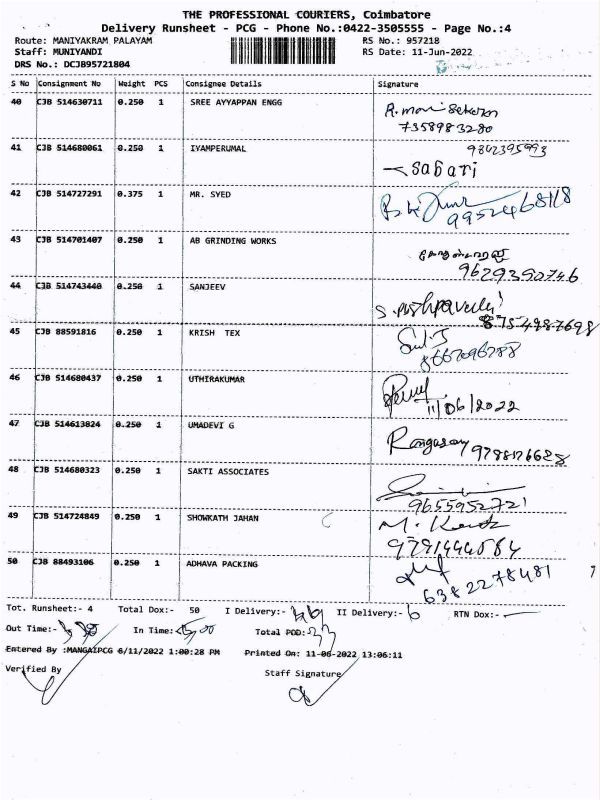 THE PROFESSIONAL COURIERS, Coimbatore
Delivery Runsheet - PCG - Phone No.:0422-3505555 - Page No.:4
Route: MANIYAKRAM PALAYAM RS No.: 957218
Staff: MUNIYANDI RS Date: 11-Jun-2022
DRS No.: DCJB95721804
S No Consignment No Weight PCS Consignee Details Signature
40 CJB 514630711 0.250 1 SREE AYYAPPAN ENGG R. mani Sekaran
7358983280
41 CJB 514680061 0.250 1 IYAMPERUMAL 9802395993
sabari
42 CJB 514727291 0.375 1 MR. SYED
9952468118
43 CJB 514701407 0.250 1 AB GRINDING WORKS
9629390746
44 CJB 514743440 0.250 1 SANJEEV
S. pushpavalli
8754987698
45 CJB 88591816 0.250 1 KRISH TEX
8667096788
46 CJB 514680437 0.250 1 UTHIRAKUMAR
11/06/2022
47 CJB 514613824 0.250 1 UMADEVI G Rangasamy 9788176628
48 CJB 514680323 0.250 1 SAKTI ASSOCIATES
9655952721
49 CJB 514724849 0.250 1 SHOWKATH JAHAN
9791444084
50 CJB 88493106 0.250 1 ADHAVA PACKING
6382278481
Tot. Runsheet:- 4 Total Dox:- 50 I Delivery:- II Delivery:- 6 RTN Dox:-
Out Time:- In Time: 5.00 Total POD:- 33
Entered By :MANGAIPCG 6/11/2022 1:00:28 PM Printed On: 11-06-2022 13:06:11
Verified By Staff Signature